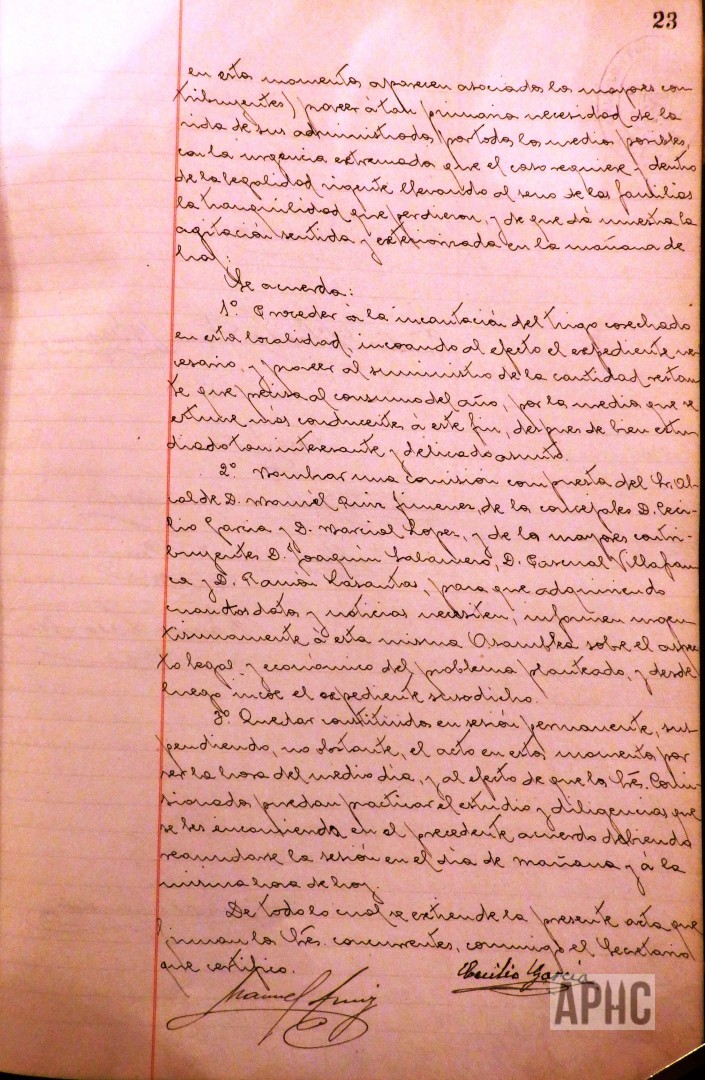 23
en estos momentos aparecen asociados los mayores con-
tribuyentes) proveer á tan primaria necesidad de la
vida de sus administrados, por todos los medios posibles,
con la urgencia extremada que el caso requiere y dentro
de la legalidad vigente llevando al seno de las familias
la tranquilidad que perdieron, y de que dá muestra la
agitación sentida y exteriorizada en la mañana de
hoy:
Se acuerda:
1º Proceder á la incautación del trigo cosechado
en esta localidad, incoando al efecto el expediente ne-
cesario, y proveer al suministro de la cantidad restan-
te que precisa al consumo del año, por los medios que se
estime más conducentes á este fin, despues de bien estu-
diado tan interesante y delicado asunto.
2º Nombrar una comisión compuesta del Sr. Al-
calde D. Manuel Ruiz Jimenez, de los concejales D. Ceci-
lio Garcia y D. Marcial Lopez, y de los mayores contri-
buyentes D. Joaquín Salamero, D. Pascual Villafran-
ca y D. Ramón Lasantas, para que adquiriendo
cuantos datos y noticias necesiten, informen urgen-
tisimamente á esta misma Asamblea sobre el aspec-
to legal y económico del problema planteado, y desde
luego incoe el expediente susodicho.
3º Quedar constituidos en sesión permanente, sus-
pendiendo, no obstante, el acto en estos momentos por
ser la hora del medio dia, y al efecto de que los Sres. Comi-
sionados puedan practicar el estudio y diligencias que
se les encomienda en el precedente acuerdo debiendo
reanudarse la sesión en el día de mañana y á la
misma hora de hoy.
De todo lo cual se extiende la presente acta que
firman los Sres. concurrentes, conmigo el Secretario
que certifico.
Cecilio García
Manuel Ruiz
APHC